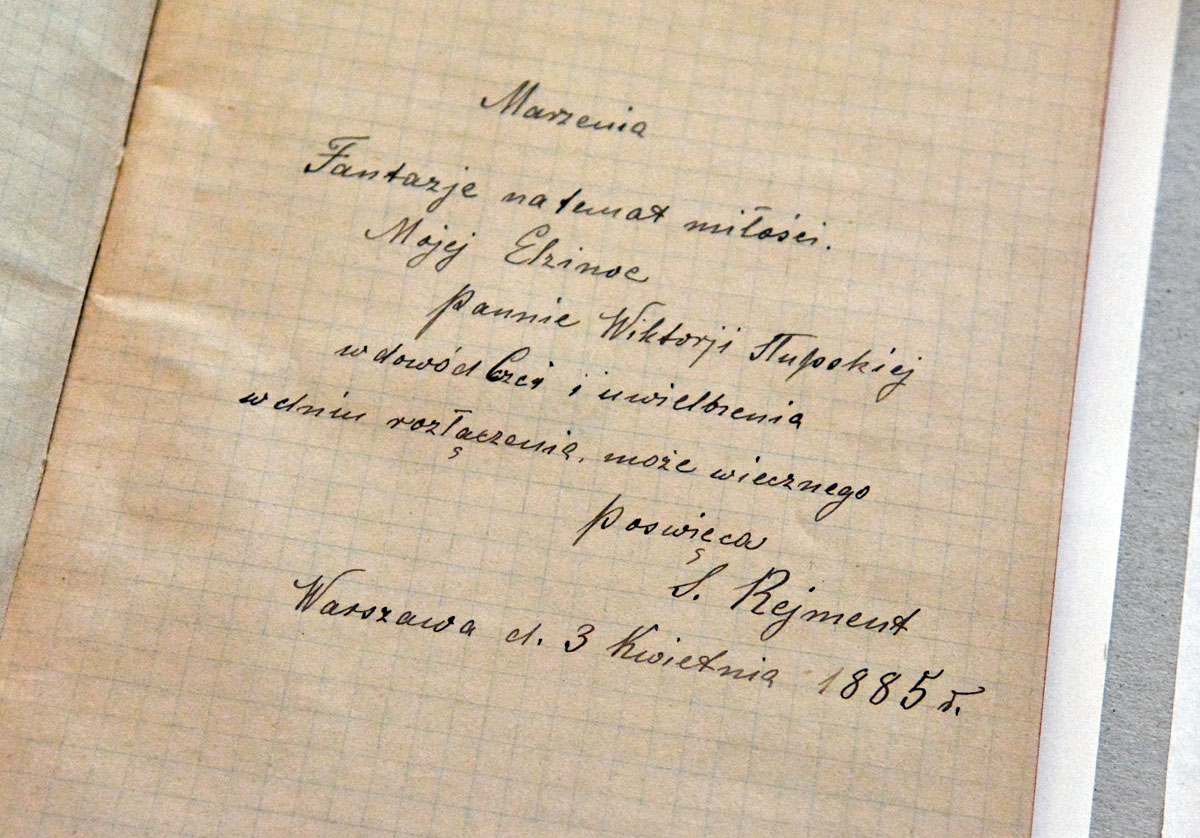 Marzenia
Fantazje na temat miłości.
Mojej Elzinoe
pannie Wiktorji
w dowód Czci i uwielbienia
w dniu rozłączenia, może wiecznego
poswięca
S. Rejment
Warszawa d. 3 Kwietnia 1885 r.